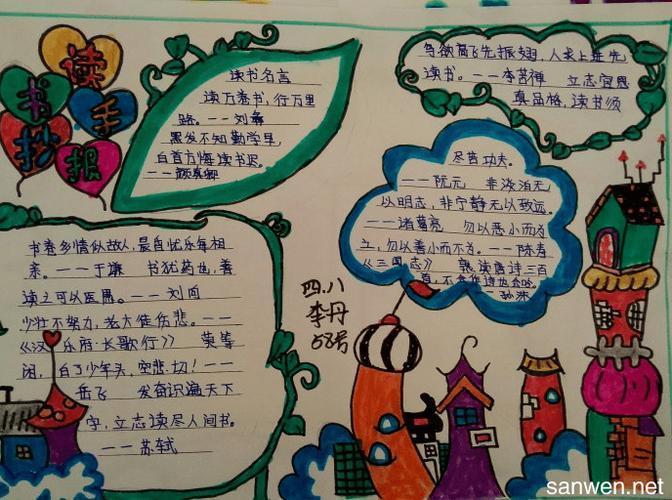 读书手抄报
读书名言
读万卷书，行万里
路。——刘彝
黑发不知勤学早，
白首方悔读书迟。
——颜真卿
鸟欲高飞先振翅，人求上进先
读书。——李苦禅 立志宜思
真品格，读书须
尽苦功夫。
——阮元 非淡泊无
以明志，非宁静无以致远。
——诸葛亮 勿以恶小而为
之，勿以善小而不为。——陈寿
《三国志》 熟读唐诗三百
首，不会作诗也会吟。
——孙洙
书卷多情似故人，晨昏忧乐每相
亲。——于谦 书犹药也，善
读之可以医愚。——刘向
少壮不努力，老大徒伤悲。——
《汉乐府·长歌行》 莫等
闲，白了少年头，空悲切！——
岳飞 发奋识遍天下
字，立志读尽人间书。
——苏轼
四、八
李丹
58号
sanwen.net